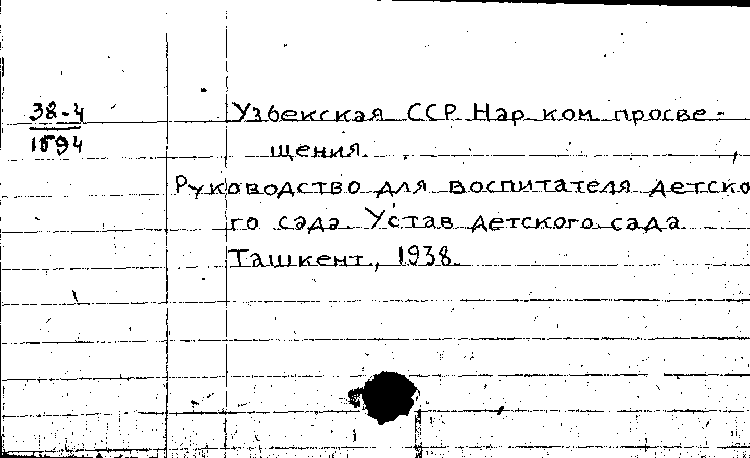 38-4
1594
Узбекская ССР Нар ком просве-
щения.
Руководство для воспитателя детско
го сада. Устав детского сада
Ташкент, 1938.